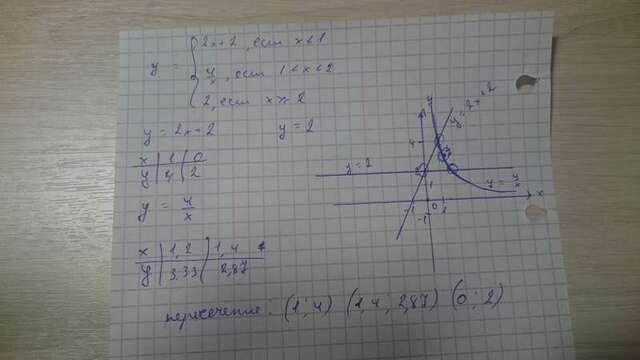 y = { 2x+2, если x<1
4/x, если 1<x<2
2, если x≥2
y = 2x+2 y = 2
x | 1 | 0
y | 4 | 2
y = 4/x
x | 1,2 | 1,4
y | 3.33 | 2,87
y
y = 2x+2
4
y=2
2
1
y = 4/x
x
-1 0 1
-1
пересечение: (1; 4) (1,4; 2,87) (0; 2)